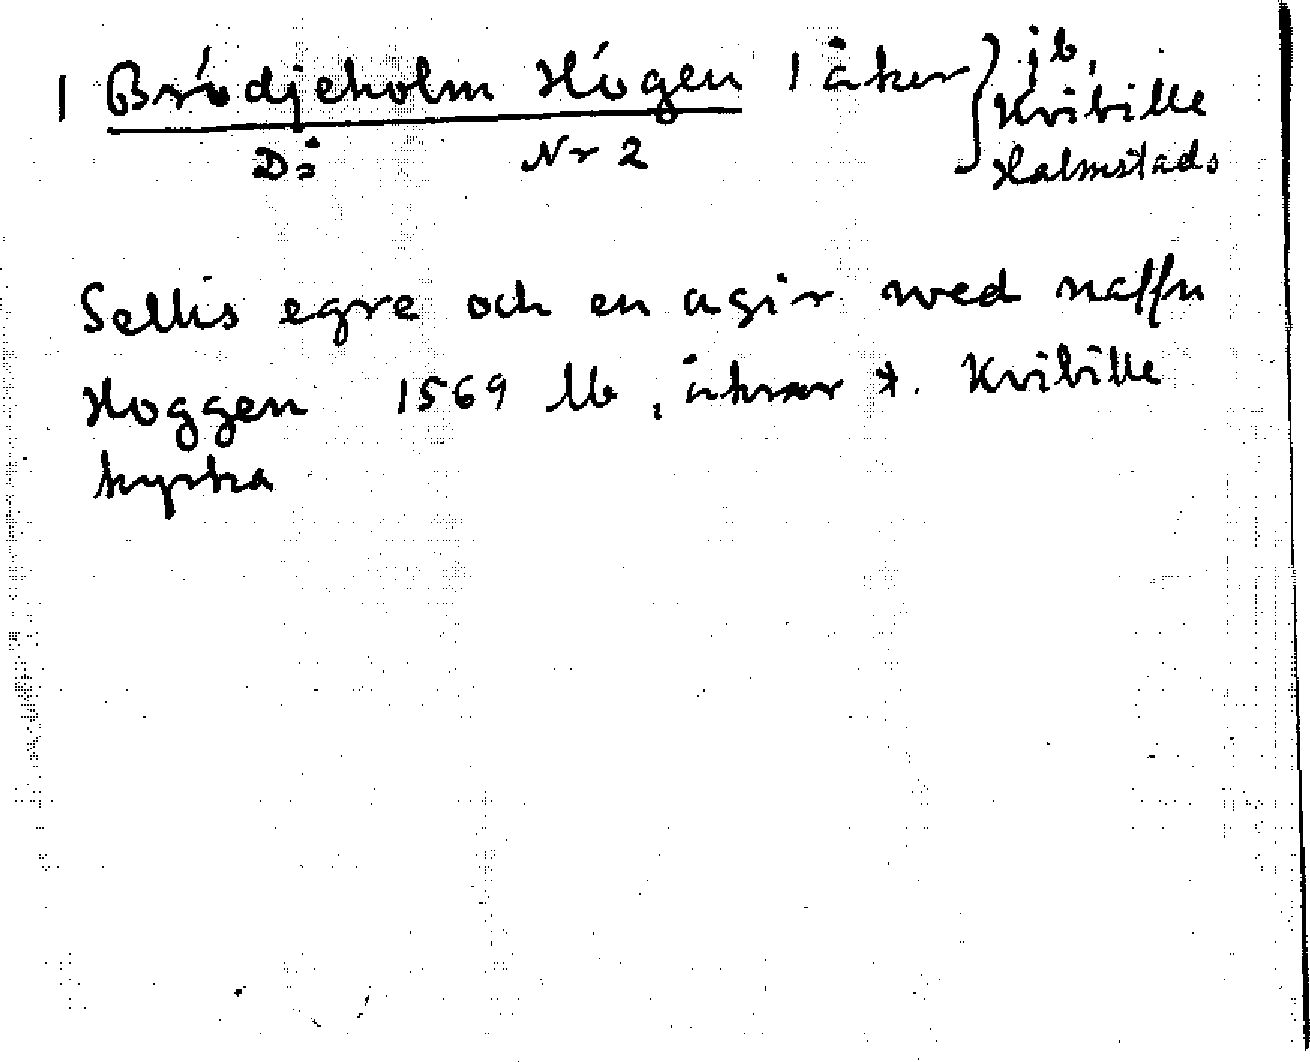 1 Brödjeholm Högen 1 åker } jb,
Kvibille
Halmstads
D: Nr 2
Sellis egre och en agir med naffn
Hoggen 1569 lb, åkrar t. Kvibille
kyrka